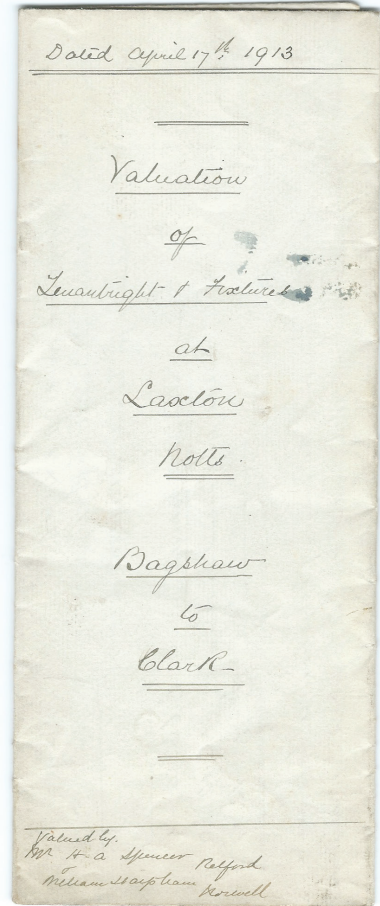 Dated April 17th, 1913
Valuation
of
Tenantright & Fixtures
at
Laxton
Notts.
Bagshaw
to
Clark
Valued by.
Mr H. A Spencer Retford
&
William Harpham Norwell